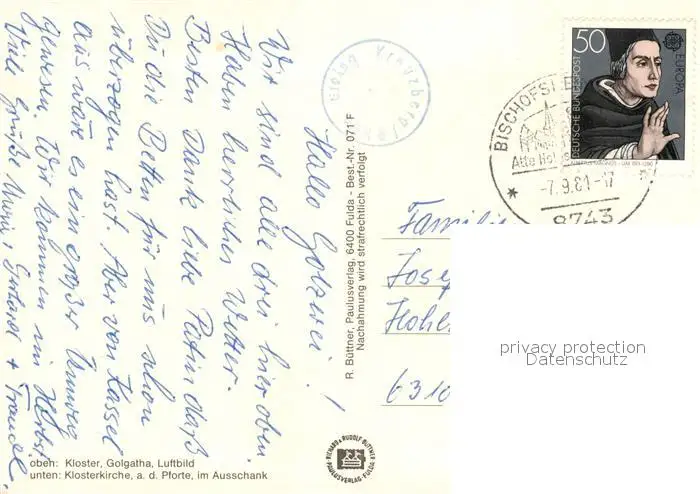 Hallo Golzerei!
Wir sind alle drei hier oben
Haben herrliches Wetter.
Besten Dank liebe Patin daß
Du die Betten für uns schon
überzogen hast. Aber von Kassel
aus wäre es ein großer Umweg
gewesen. Wir kommen im Herbst
Viele Grüße Maria, Gerlinde +
R. Büttner, Paulusverlag, 6400 Fulda - Best.-Nr. 071 F
Nachahmung wird strafrechtlich verfolgt
Kreuzberg
50
DEUTSCHE BUNDESPOST
EUROPA
BISCHOFSH
Alte
-7.9.81-17
8743
Familie
Jose
Hohe
6310
privacy protection
Datenschutz
oben: Kloster, Golgatha, Luftbild
unten: Klosterkirche, a. d. Pforte, im Ausschank
RICHARD & RUDOLF BÜTTNER
PAULUSVERLAG · FULDA